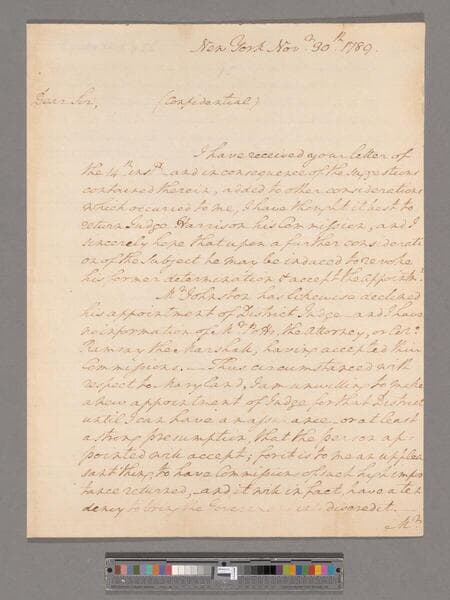 New York Nov.r 30th 1789.
Dear Sir, (Confidential)
I have received your letter of
the 14th inst. and in consequence of the suggestions
contained therein, added to other considerations
which occurred to me, I have thought it best to
return Judge Harrison his Commission, and I
sincerely hope that upon a further considerati
on of the subject he may be induced to revoke
his former determination & accept the appointmt.
Mr. Johnston has likewise declined
his appointment of District Judge – and I have
no information of Mr. Potts, the Attorney, or Colo.
Ramsay the Marshall, having accepted their
Commissions. – Thus circumstanced with
respect to Maryland, I am unwilling to make
a new appointment of Judge for that District
until I can have an assurance – or at least
a strong presumption, that the person ap-
pointed will accept; for it is to me an unplea
sant thing to have Commissions of such high impor
tance returned, – and it will in fact, have a ten
dency to bring the discredit. –
Mr.